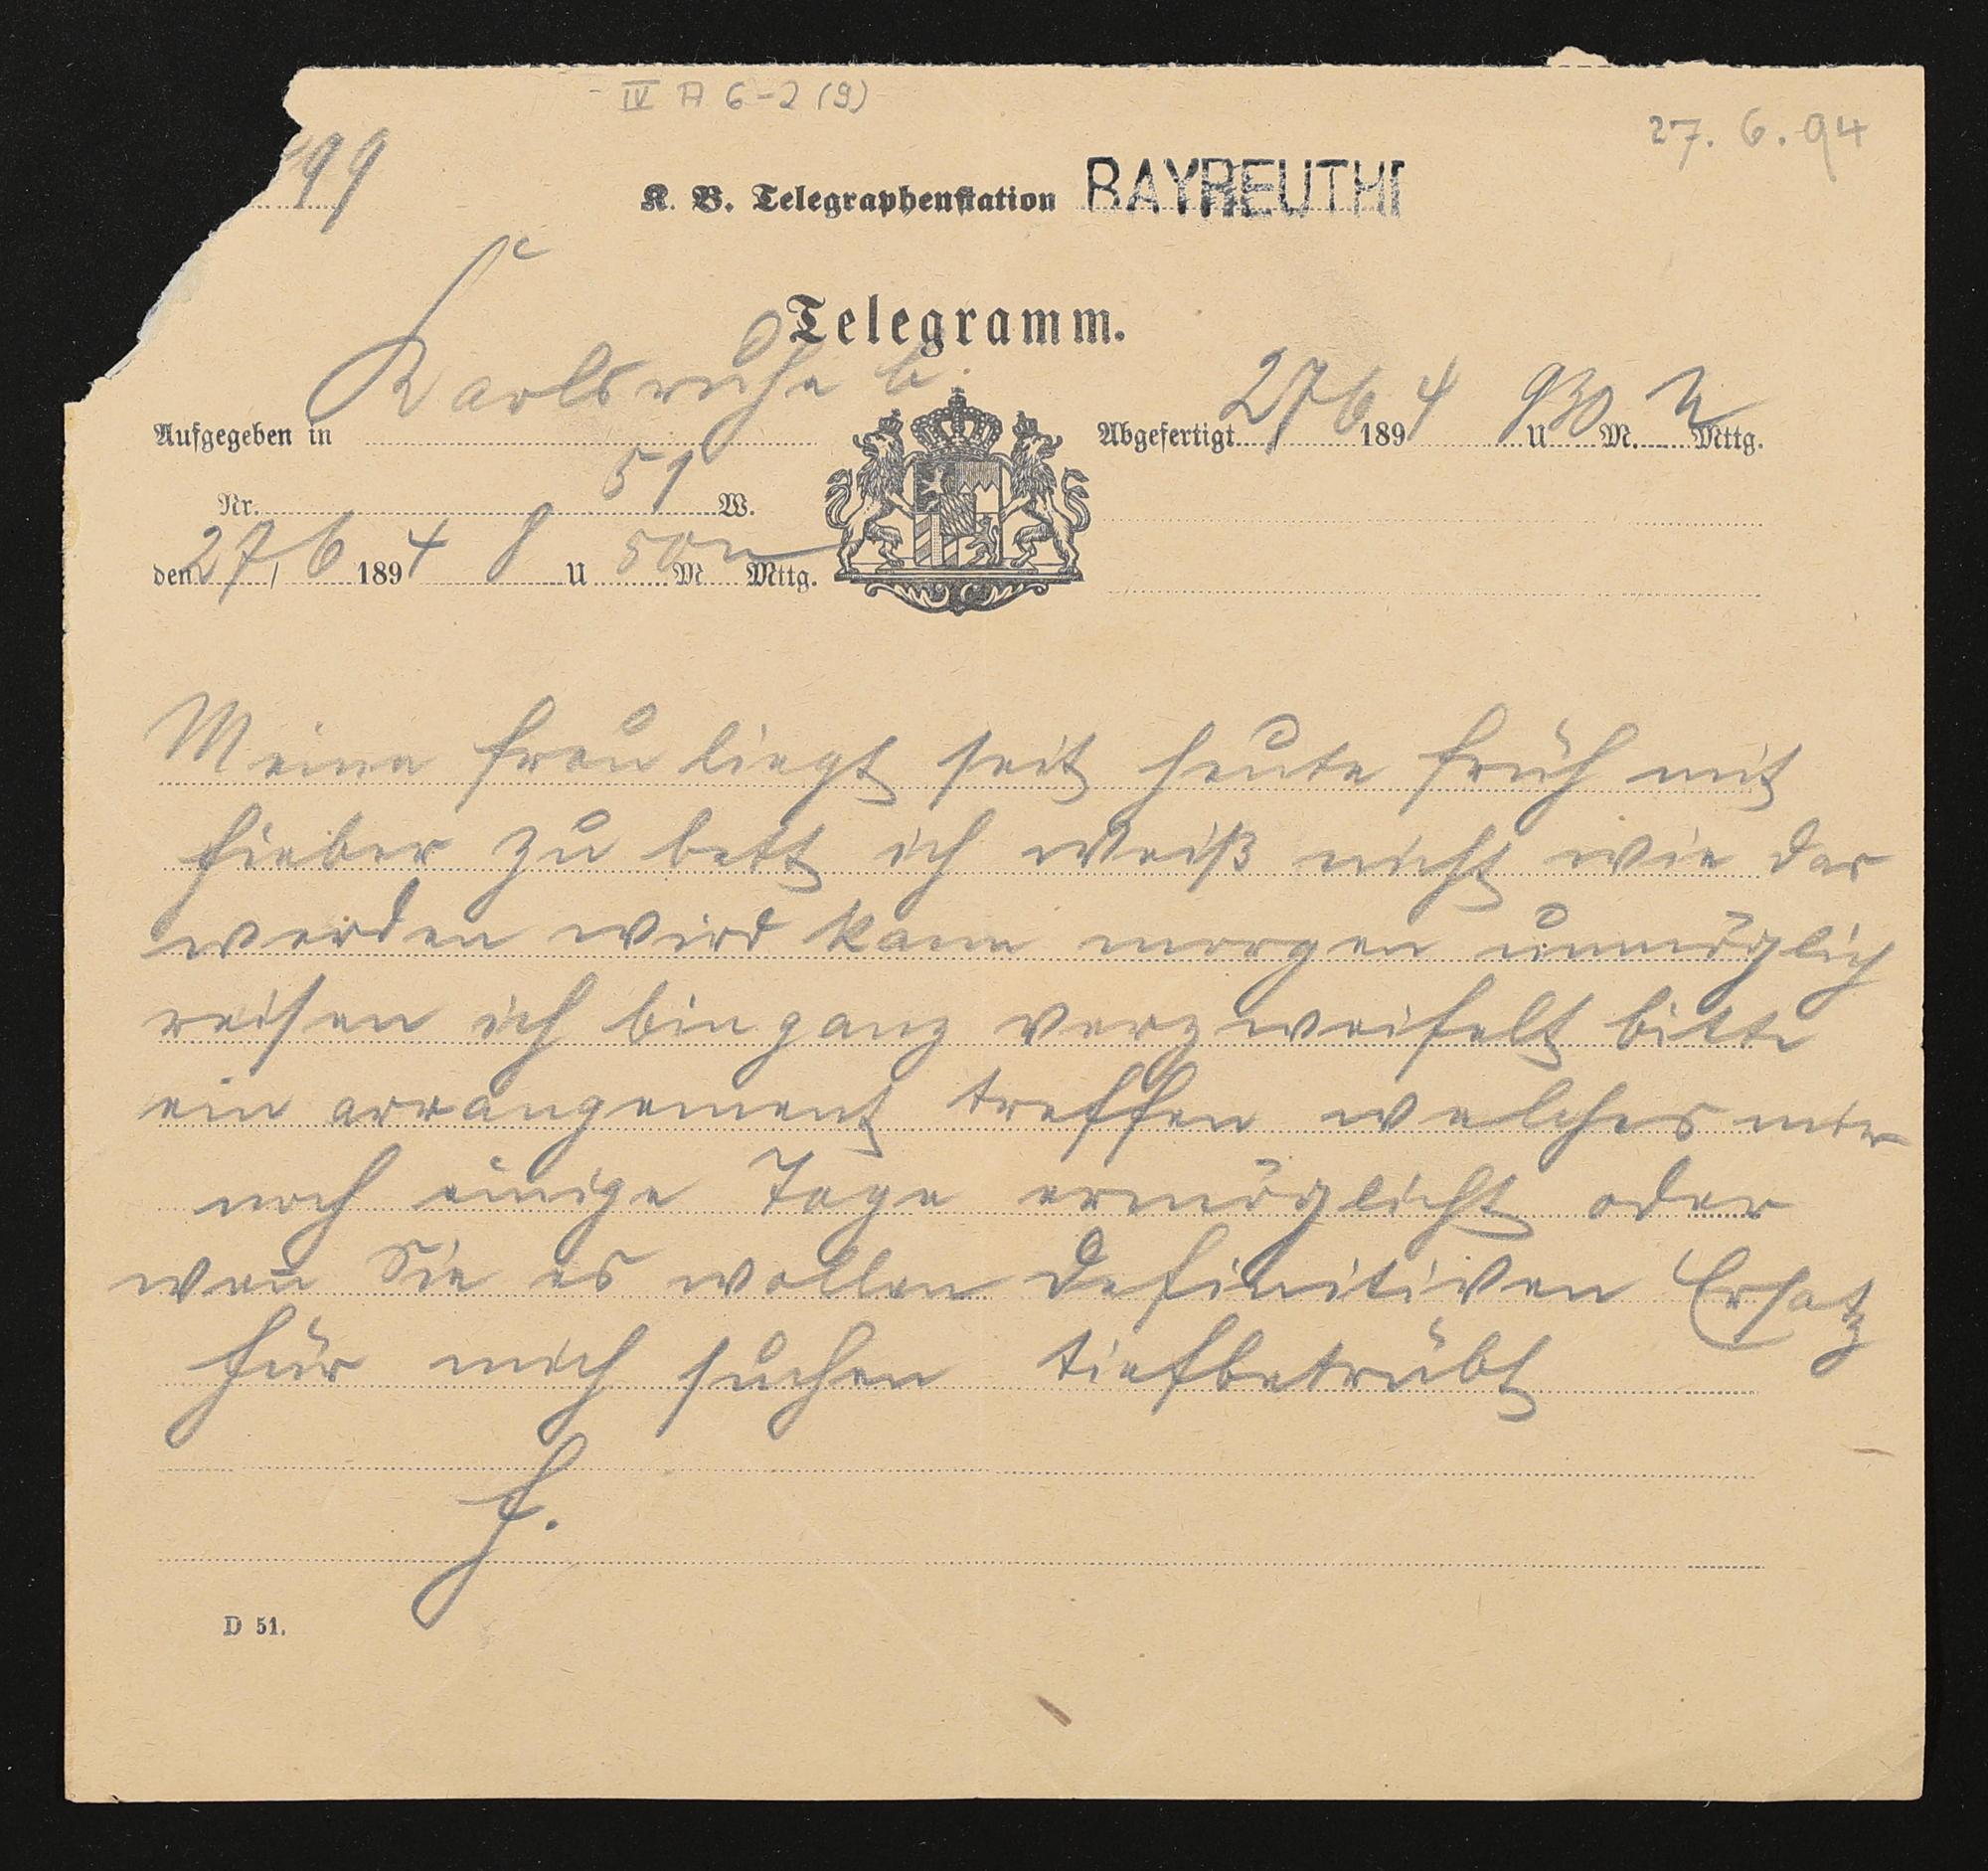 IV A 6-2 (9)
27. 6. 94
99
K. B. Telegraphenstation BAYREUTH
Telegramm.
Karlsruhe b.
Aufgegeben in
Abgefertigt 27 6 1894 9 U 30 M. N Mttg.
Nr. 51 W.
den 27/6 1894 8 U 50 M n Mttg.
Meine frau liegt seit heute früh mit
fieber zu bett ich weiß nicht wie das
werden wird kann morgen unmöglich
reisen ich bin ganz verzweifelt bitte
ein arrangement treffen welches mir
noch einige Tage ermöglicht oder
wen̄ Sie es wollen definitiven Ersatz
für mich suchen tiefbetrübt
f.
D 51.